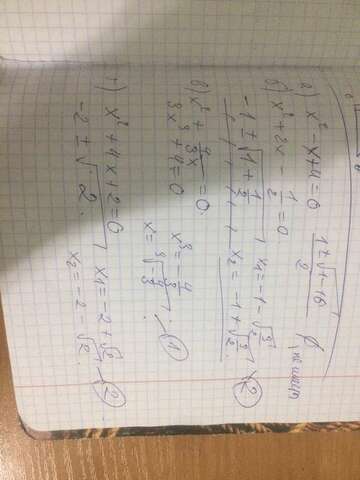 а) x² - x + 4 = 0   (1 ± √(1 - 16))/2   ∅
б) x² + 2x - 1/2 = 0
-1 ± √(1 + 1/2)   x₁ = -1 - √(3/2)
x₂ = -1 + √(3/2)   ②
в) x² + 4/(3x) = 0
3x³ + 4 = 0   x³ = -4/3
x =   ①
г) x² + 4x + 2 = 0   x₁ = -2 + √2
-2 ± √2   x₂ = -2 - √2   ②